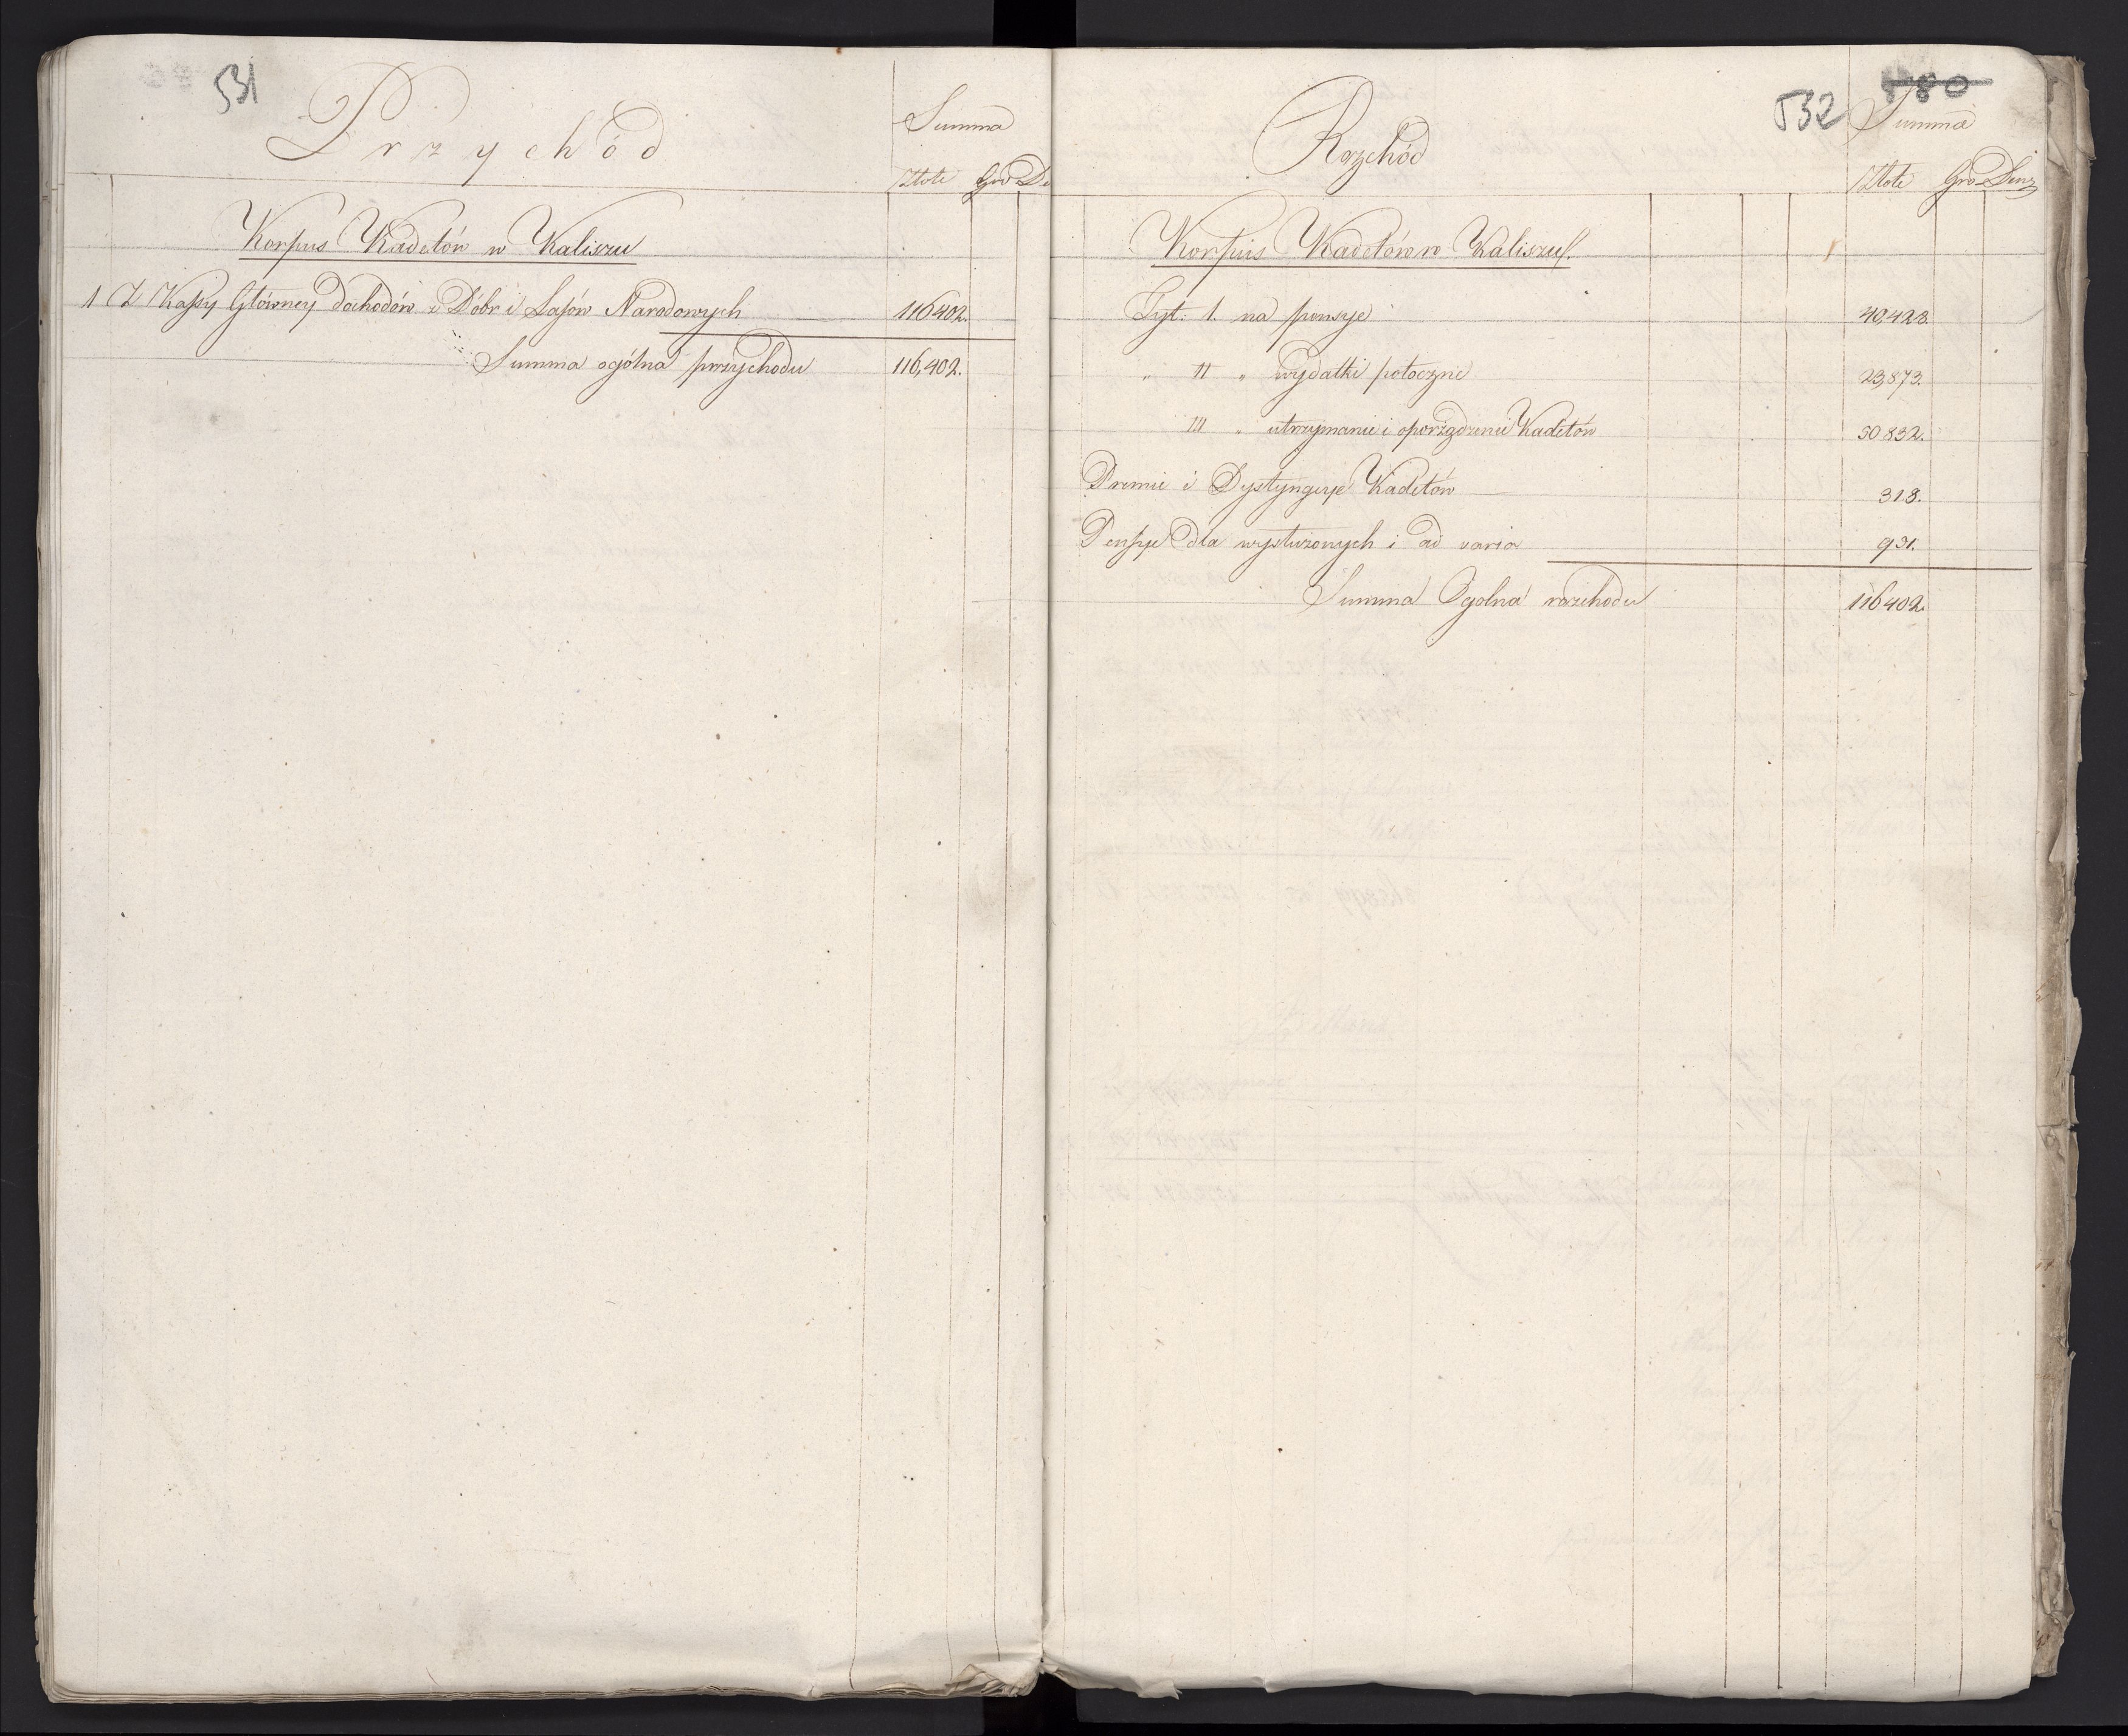 531
Przychód
Summa
Złote Gro De
Korpus Kadetów w Kaliszu
1 Z Kassy Główney dochodów z Dobr i Lasów Narodowych 116402.
Summa ogólna przychodu 116,402.
880
532
Rozchód
Summa
Złote Gro Den
Korpus Kadetów w Kaliszu.
Tyt. 1. na pensye 40,428.
„ II „ wydatki potoczne 23,873.
III „ utrzymanie i oporządzenie Kadetów 50832.
Premie i Dystyngcye Kadetów 318.
Pensye dla wysłużonych i ad varia 951.
Summa Ogolna rozchodu 116402.